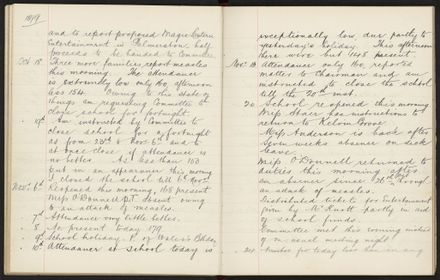 1899
and to report proposed Magic Lantern
Entertainment in Palmerston, half
proceeds to be handed to Committee
Oct 18. Three more families report measles
this morning. The attendance
is extremely low only 160, afternoon
less 154. Owing to this state of
things am requesting Committee to
close school for fortnight.
19th Am instructed by Committee to
close school for a fortnight
as from 23rd to Nov 6th and to
at once close if attendance is
no better. As less than 100
put in an appearance this morning
I closed the school till 6th Nov.
Nov. 6th Reopened this morning, 168 present
Miss O'Donnell P.T. absent owing
to an attack of measles.
7th Attendance very little better.
8 No present today 179
9th School holiday. P. of Wales's B'day
10th Attendance at School today is
exceptionally low, due partly to
yesterday's holiday. This afternoon
there were but 148 present.
Nov. 13 Attendance only 160, reported
matter to Chairman and am
instructed to close the school
till the 20th inst.
20 School reopened this morning
Miss has instructions to
return to
Miss Anderson is back after
seven weeks absence on sick
leave
Miss O'Donnell returned to
duties this morning after
an absence since 26th through
an attack of measles.
Distributed tickets for Entertainment
given by Mr partly in aid
of school funds.
Committee met this evening instead
of on usual meeting night
21 Number for today less than on any